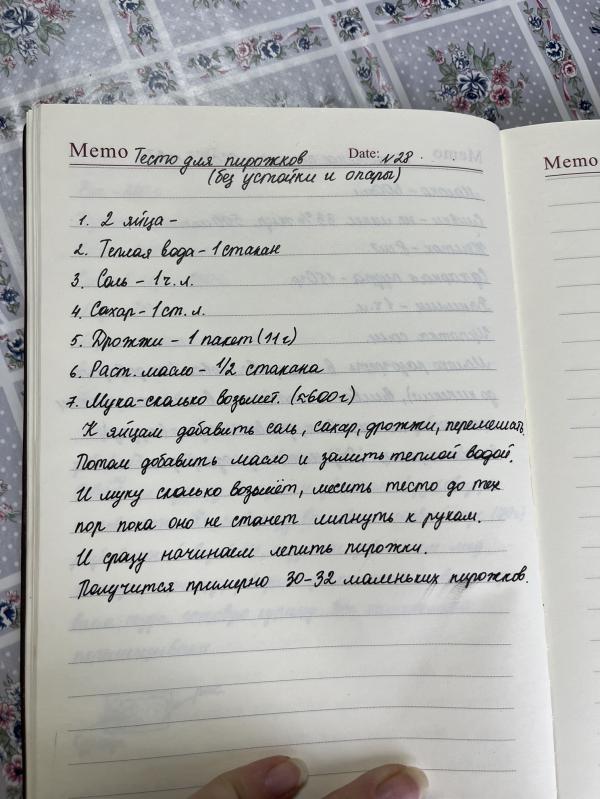 Memo Тесто для пирожков Date: N28.
(без устойки и опары)
1. 2 яйца -
2. Теплая вода - 1 стакан
3. Соль - 1 ч.л.
4. Сахар - 1 ст. л.
5. Дрожжи - 1 пакет (11 г)
6. Раст. масло - 1/2 стакана
7. Мука - сколько возьмет. (≈600 г)
К яйцам добавить соль, сахар, дрожжи, перемешать.
Потом добавить масло и залить теплой водой.
И муку сколько возьмёт, месить тесто до тех
пор пока оно не станет липнуть к рукам.
И сразу начинаем лепить пирожки.
Получится примерно 30-32 маленьких пирожков.
Memo